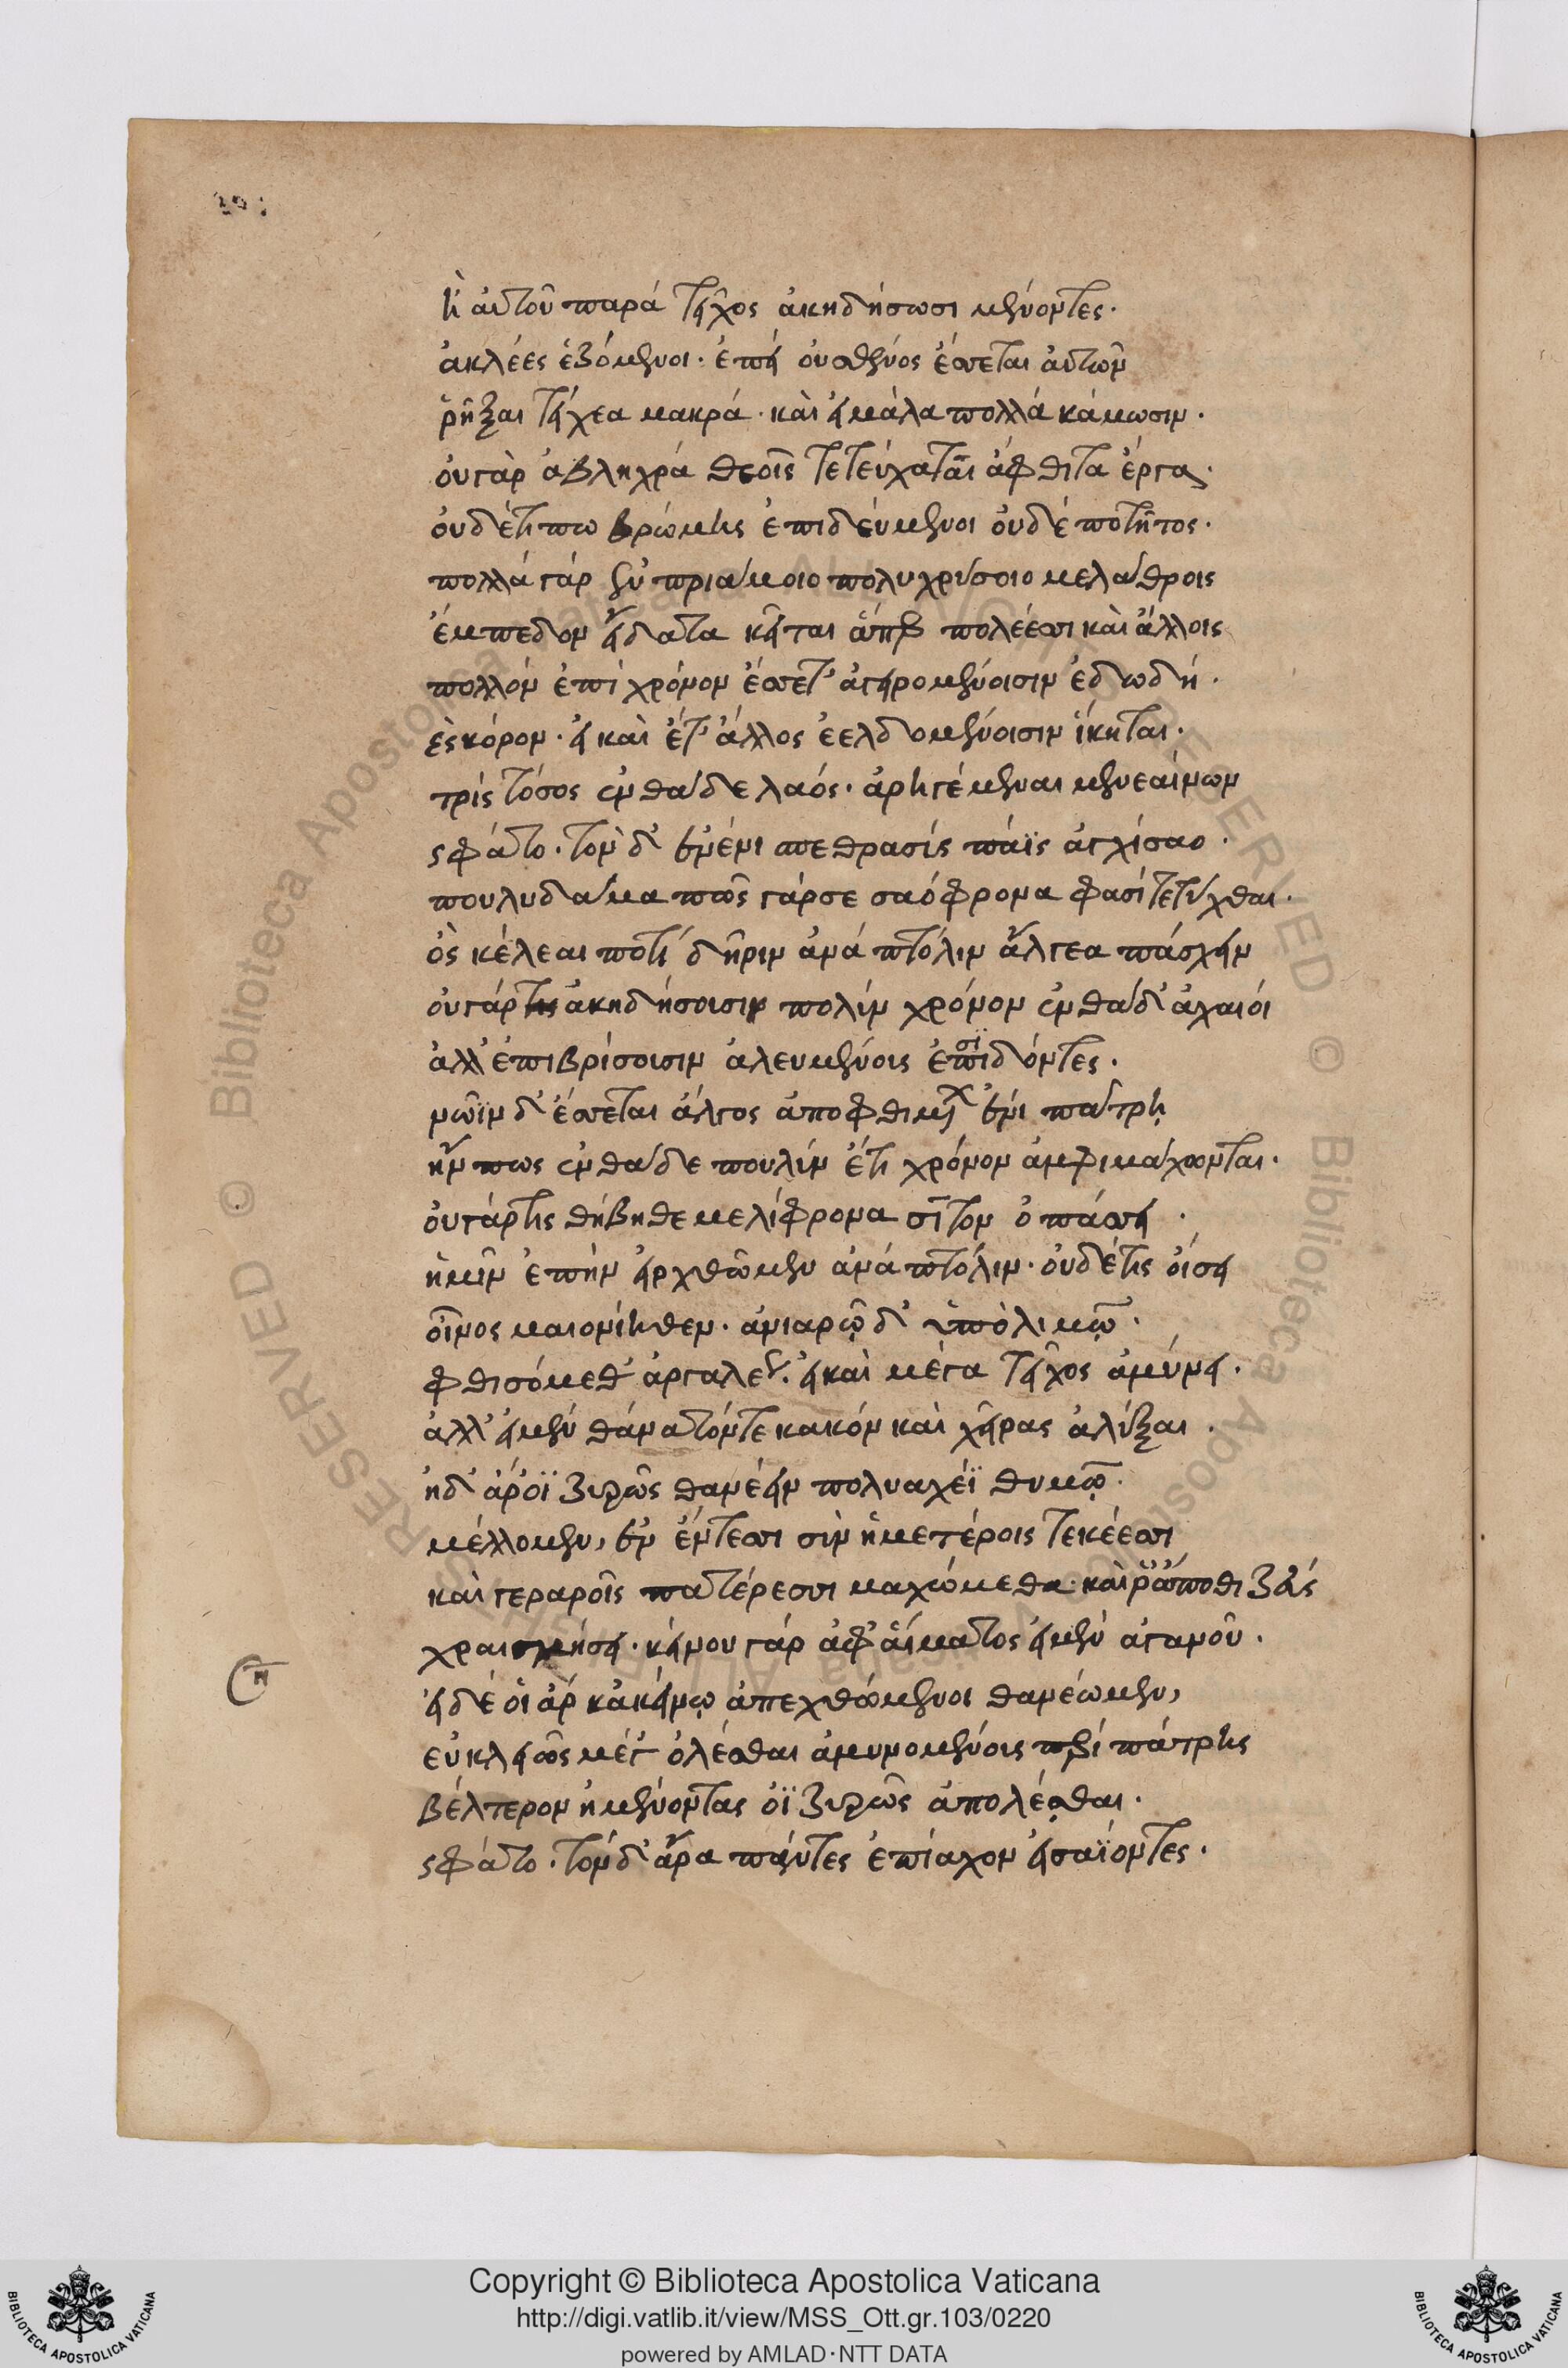 ἢ αὐτοῦ παρά τεῖχος ἀκηδήσωσι μένοντες.
ἀκλέες ἑζόμενοι. ἐπεί οὐ σθένος ἔσσεται αὐτῶν
ῥῆξαι τείχεα μακρά. καὶ εἰ μάλα πολλά κάμωσιν.
οὐ γὰρ ἀβληχρά θεοῖς τετεύχαται ἄφθιτα ἔργα.
οὐδέ τί πω βρώμης ἐπιδεύμενοι οὐδέ ποτῆτος.
πολλά γάρ ἐν πριάμοιο πολυχρύσοιο μελάθροις
ἔμπεδον εἴδατα κεῖται ἅπερ πολέεσσι καὶ ἄλλοις
πολλόν ἐπί χρόνον ἔσσετ' ἀγειρομένοισιν ἐδωδή.
ἐς κόρον. εἰ καὶ ἔτ' ἄλλος ἐελδομένοισιν ἵκηται.
τρίς τόσος ἐνθάδε λαός. ἀρηγέμεναι μενεαίνων
ς φάτο. τὸν δ' ἐνένιπε θρασύς πάϊς ἀγχίσαο.
πουλυδάμα πῶς γάρ σε σαόφρονα φασί τετύχθαι.
ὃς κέλεαι ποτί δῆριν ἀνά πτόλιν ἄλγεα πάσχειν
οὐ γάρ τις ἀκηδήσουσιν πολύν χρόνον ἐνθάδ' ἀχαιοί
ἀλλ' ἐπιβρίσουσιν ἀλευμένοις ἐπϊσιδόντες.
νῶϊν δ' ἔσσεται ἄλγος ἀποφθιμέν ἐνί πάτρῃ
ἤν πως ἐνθάδε πουλύν ἔτι χρόνον ἀμφιμάχωνται.
οὐ γάρ τις θήβηθε μελίφρονα σῖτον ὀπάσσει.
ἡμῖν ἐπήν εἰρχθῶμεν ἀνά πτόλιν. οὐδέ τις οἴσει
οἶνος μαιονίηθεν. ἀνιαρῷ δ' ὑπὸ λιμῷ.
φθισόμεθ' ἀργαλέως. εἰ καὶ μέγα τεῖχος ἀμύνει.
ἀλλ' εἰ μέν θάνατόν τε κακόν καὶ χεῖρας ἀλύξαι.
ηδ' ἄρ' ὀϊζυρῶς θανέειν πολυαχέϊ θυμῷ.
μέλλομεν, ἐν ἔντεσσι σὺν ἡμετέροις τεκέεσσι
καὶ γεραροῖς πατέρεσσι μαχώμεθα. καί ῥά ποθι ζεύς
χραισμήσει. κείνου γάρ ἀφ' αἵματος εἰμέν ἀγανοῦ.
εἰ δέ οἱ ἄρ κἀκείνῳ ἀπεχθώμενοι θανέωμεν,
εὐκλειῶς μέγ' ὀλέσθαι ἀμυνομένοις περί πάτρης
βέλτερον ἠ μένοντας ὀϊζυρῶς ἀπολέσθαι.
ς φάτο. τόν δ' ἄρα πάντες ἐπίαχον εἰσαΐοντες.
Copyright © Biblioteca Apostolica Vaticana
http://digi.vatlib.it/view/MSS_Ott.gr.103/0220
powered by AMLAD·NTT DATA